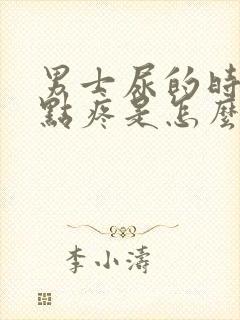 男士尿的時
點疼是怎麼
李小濤